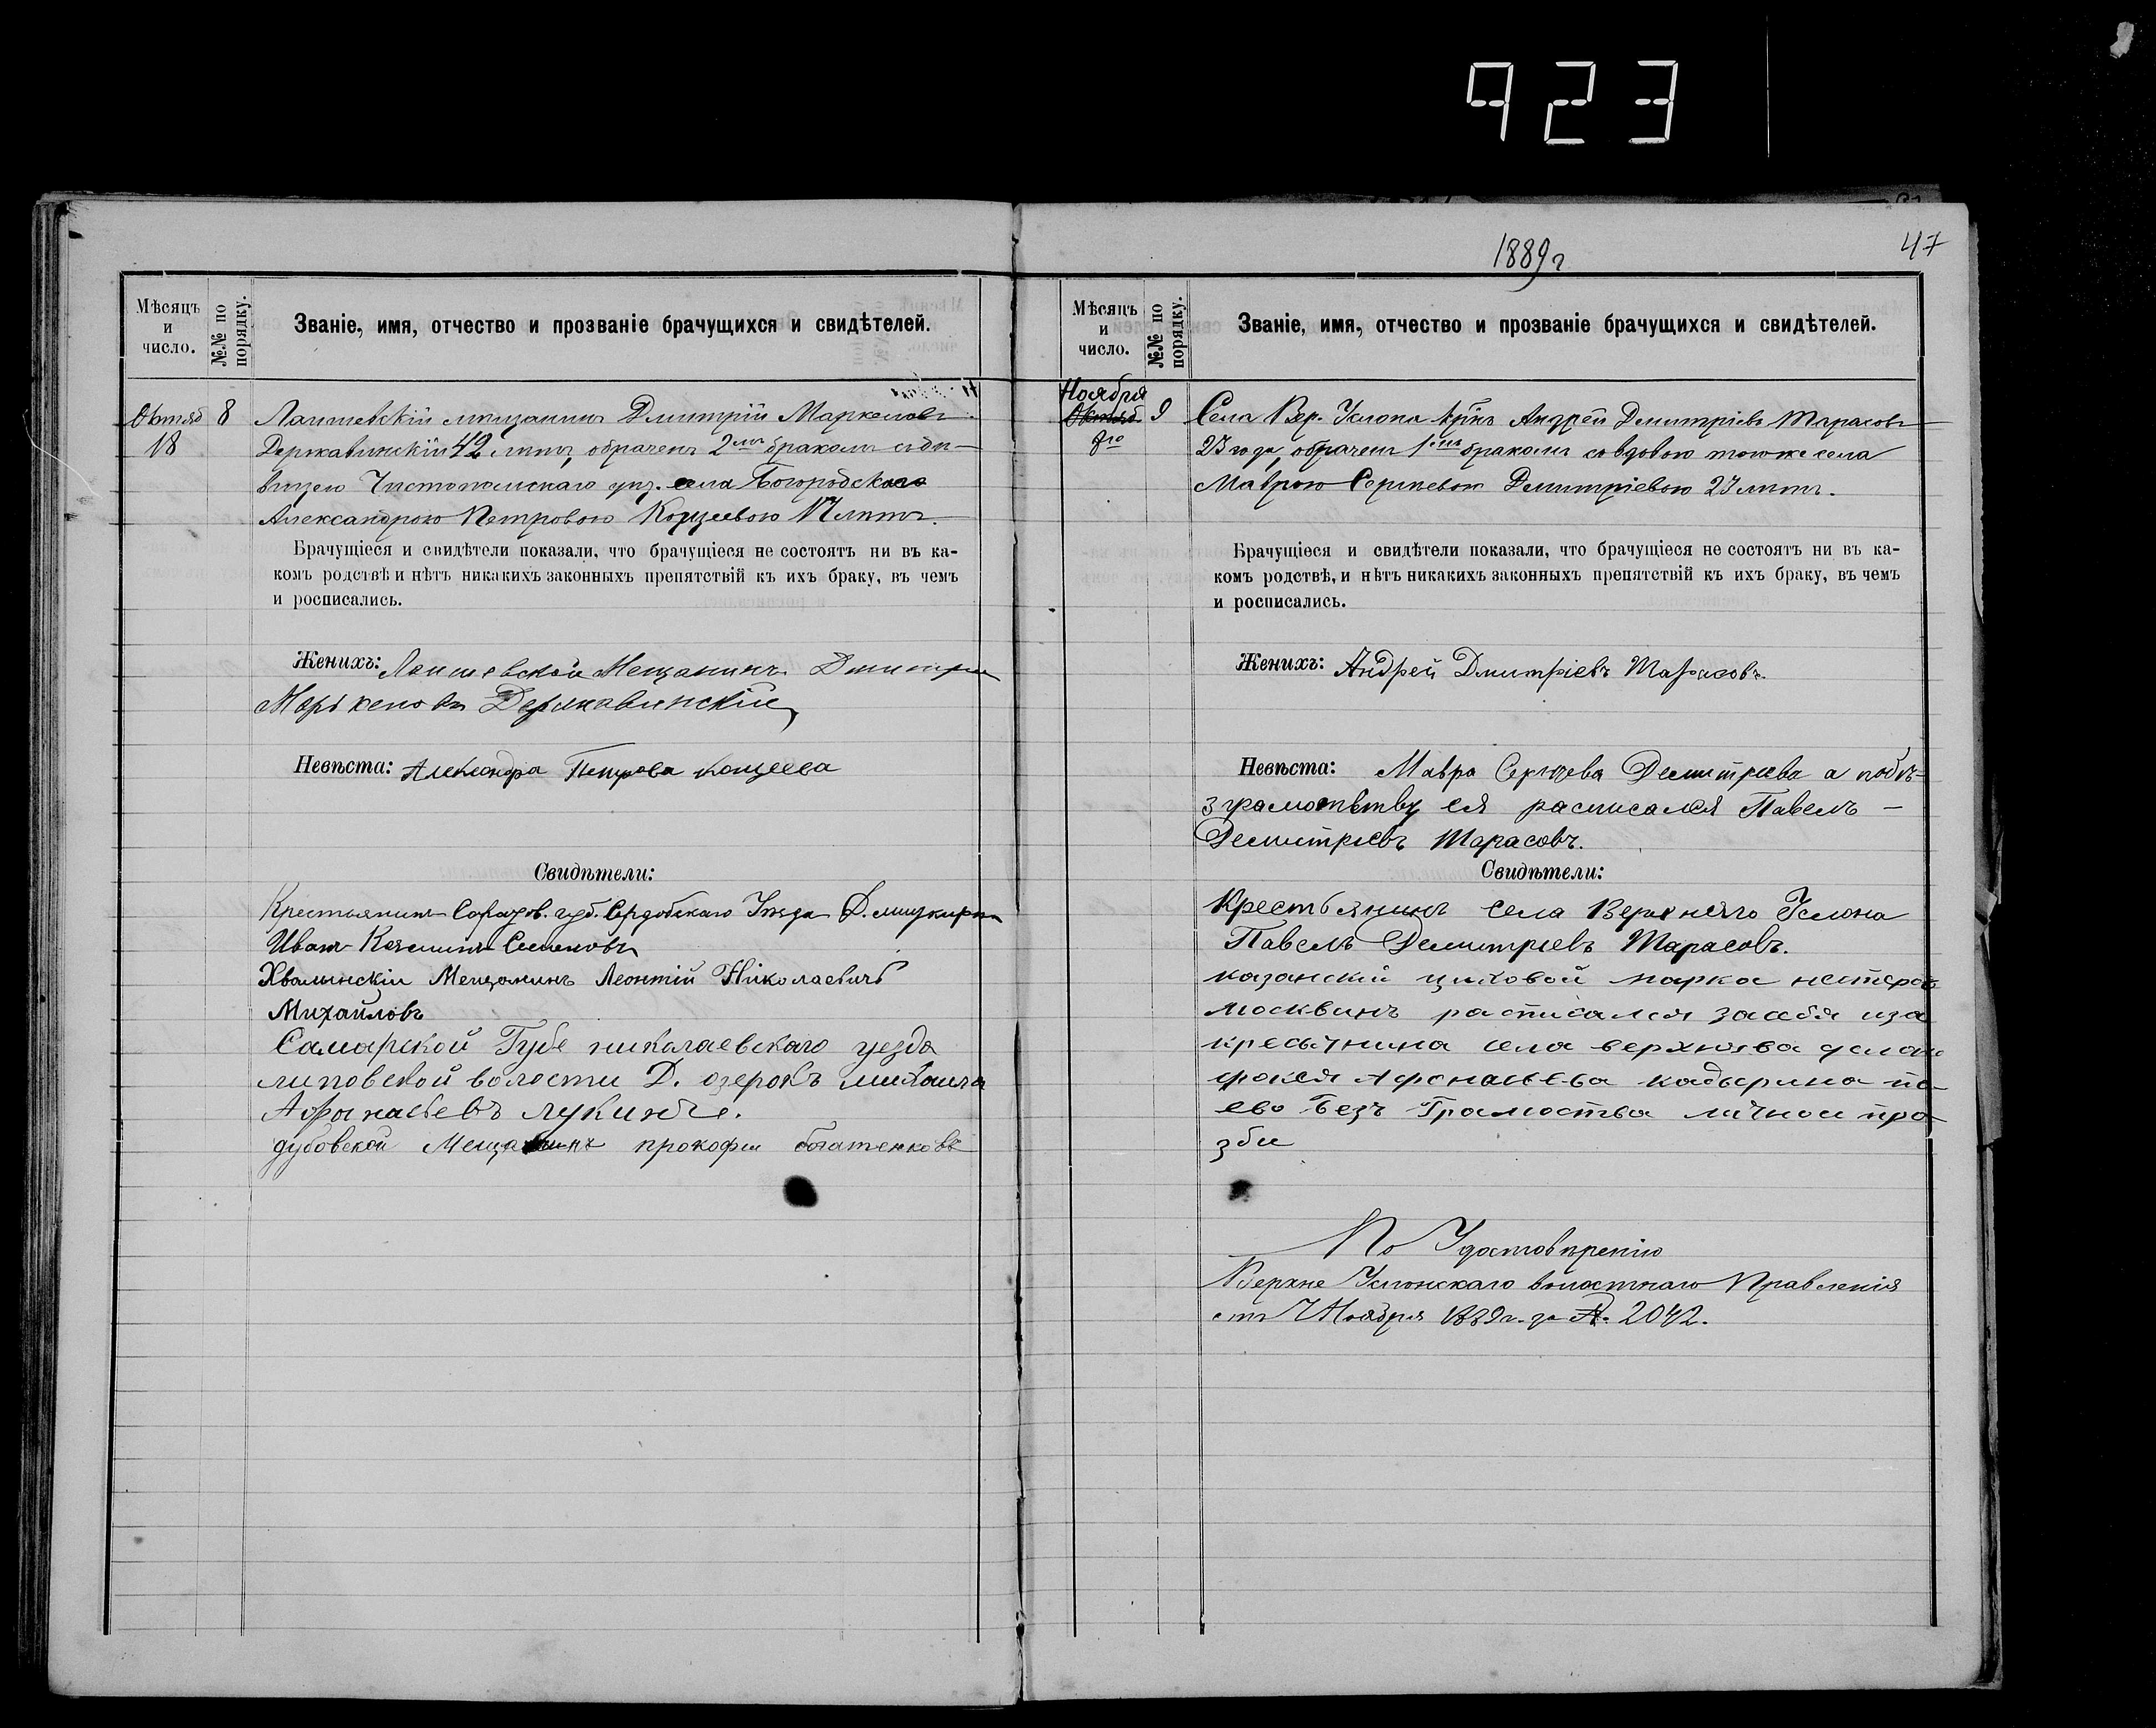 923
Мѣсяцъ и число.
№№ по порядку.
Званіе, имя, отчество и прозваніе брачущихся и свидѣтелей.
Октяб 8 Лаишевскій мѣщанинъ Дмитрій Маркеловъ
18 Державинскій 42 лѣтъ, обрачен 2мъ бракомъ съ дѣ-
вицею Чистопольскаго уѣз. села Богородскаго
Александрою Петровою Кощеевою 17 лѣтъ.
Брачущіеся и свидѣтели показали, что брачущіеся не состоятъ ни въ ка-
комъ родствѣ и нѣтъ никакихъ законныхъ препятствій къ ихъ браку, въ чемъ
и росписались.
Женихъ: Лаишевской Мещанинъ Дмитри
Маръкеловъ Державинскій
Невѣста: Александра Петрова Кощеева
Свидѣтели:
Крестьянинъ Саратов. губ. Сердобскаго Уѣзда Д.
Иванъ Семеновъ
Хвалынскій Мещанинъ Леонтій Николаевичъ
Михайловъ
Самарской Губе николаевскаго уезда
липовской волости Д. озерокъ михаила
Афанасьевъ лукинъ.
дубовской Мещанинъ прокофи богатенковъ
1889 г
47
Мѣсяцъ и число.
№№ по порядку.
Званіе, имя, отчество и прозваніе брачущихся и свидѣтелей.
Ноября
Октяб 9 Села Вер. Услона Андрей Димитріевъ Тарасовъ
8го 23 года, обрачен 1мъ бракомъ со вдовою тогоже села
Маврою Сергѣевою Димитріевою 23 лѣтъ.
Брачущіеся и свидѣтели показали, что брачущіеся не состоятъ ни въ ка-
комъ родствѣ, и нѣтъ никакихъ законныхъ препятствій къ ихъ браку, въ чемъ
и росписались.
Женихъ: Андрей Дмитріевъ Тарасовъ.
Невѣста: Мавра Сергѣева Демитриева а побѣ-
зграмотству ея расписался Павелъ —
Демитриевъ Тарасовъ.
Свидѣтели:
Крестьянинъ села Верхняго Услона
Павелъ Демитриевъ Тарасовъ.
казанский цыховой марка нестеров
москвинъ расписался засебя иза
кресьянина села верхнева услон
Афонасьева
ево безъ Грамоства личной про
зби
По Удостовѣренію
Верхне Услонскаго волостнаго Правленія
отъ 7 Ноября 1889 г. за №. 2042.